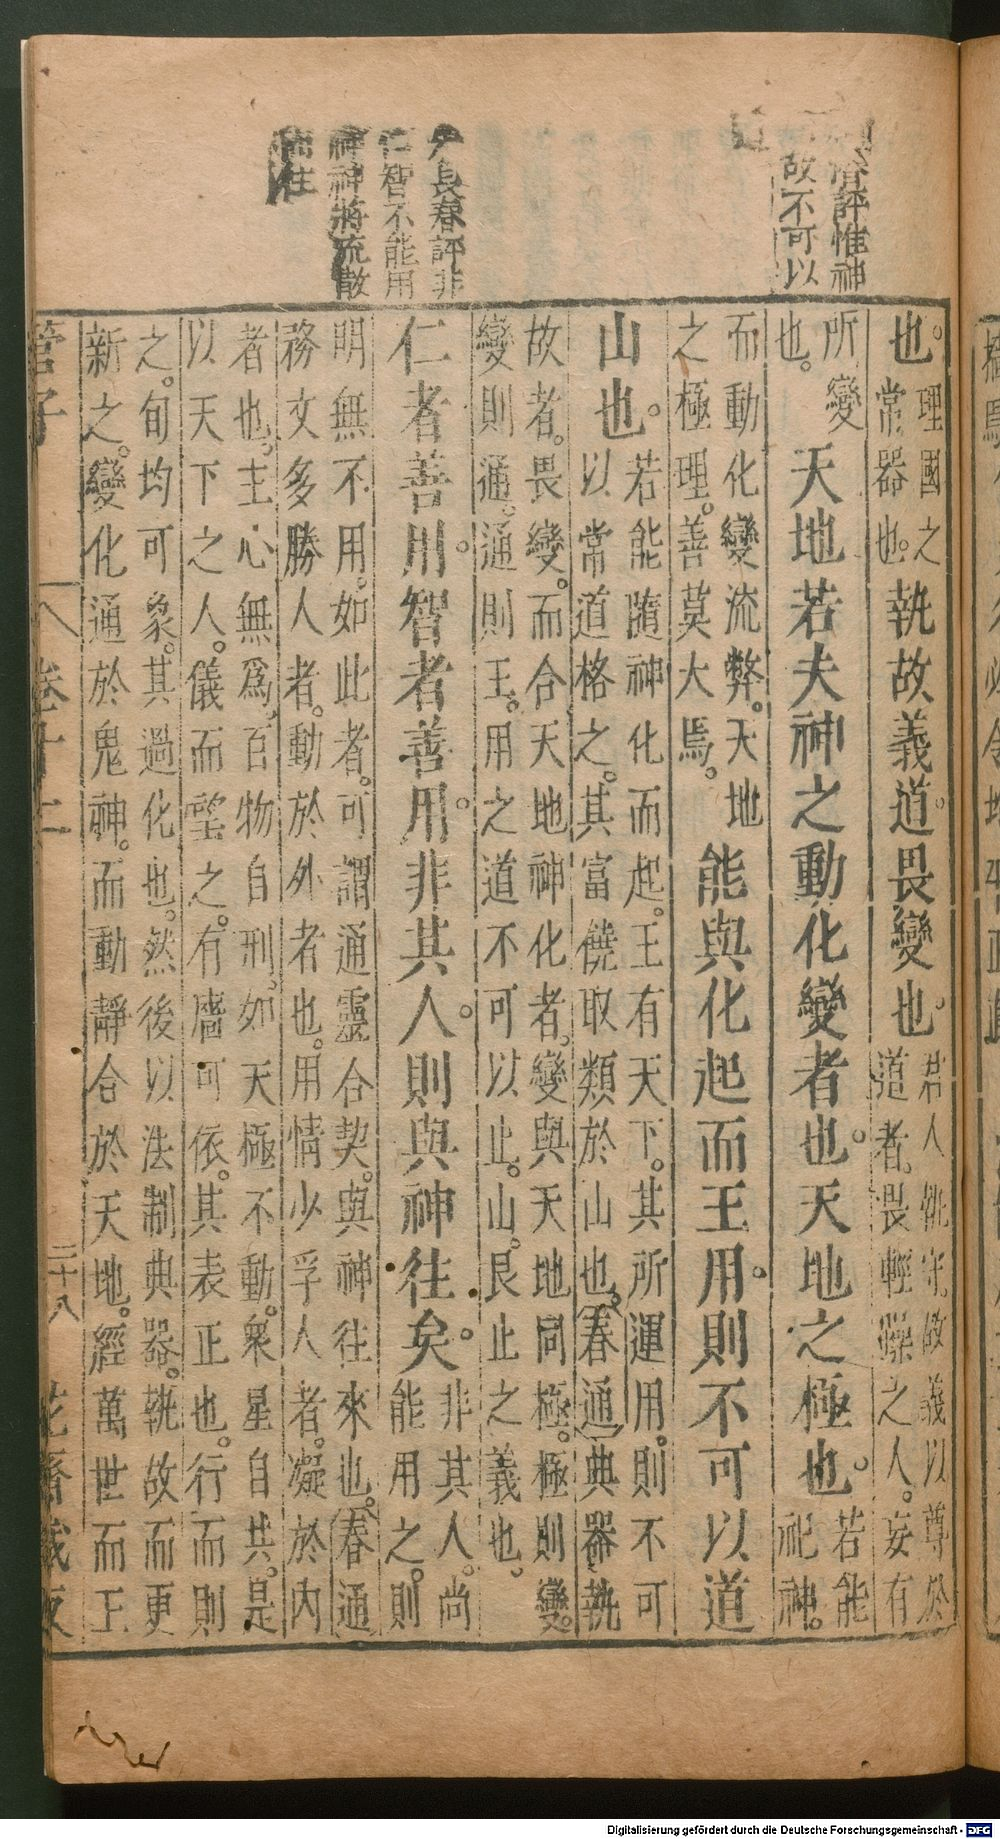 濟評惟神
故不可以
尹長春評非
仁智不能用
神神將流散
而往
也。
理國之
常器也。
執故義道。畏變也。
君人能守故義以尊於
道者。畏輕躁之人。妄有
所變
也。
天地若夫神之動化變者也。天地之極也。
若能
祀神。
而動化變流弊。天地
之極理。善莫大焉。
能與化起而王用。則不可以道
山也。
若能隨神化而起。王有天下。其所運用。則不可
以常道格之。其富饒取類於山也。春通典器執
故者。畏變。而合天地神化者。變與天地同極。極則變。
變則通。通則王。用之道不可以止。山。艮止之義也。
仁者善用。智者善用。非其人。則與神往矣。
非其人。尚
能用之。則
明無不用。如此者。可謂通靈合契。與神往來也。春通
務文多勝人者。動於外者也。用情少孚人者。凝於內
者也。主心無爲。百物自刑。如天極不動。衆星自共。是
以天下之人。儀而望之。有牆可依。其表正也。行而則
之。旬均可象。其過化也。然後以法制典器。執故而更
新之。變化通於鬼神。而動靜合於天地。經萬世而王
管子
卷十二
二十八
花齋藏板
Digitalisierung gefördert durch die Deutsche Forschungsgemeinschaft - DFG